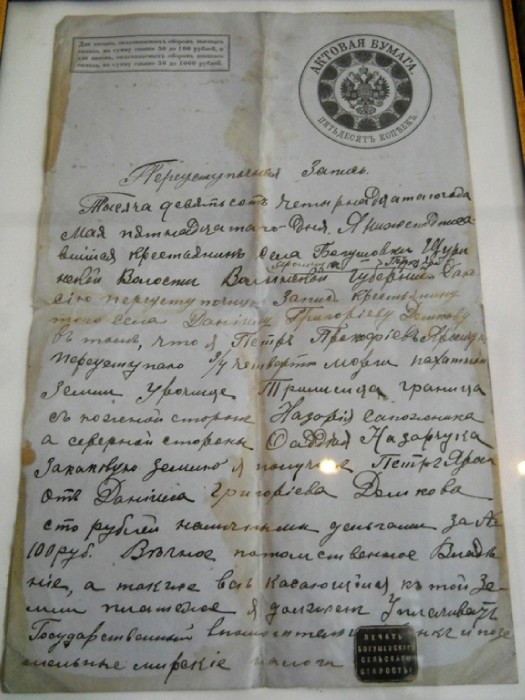 Для актовъ, оплачиваемыхъ сборомъ высшаго
оклада, на сумму свыше 50 до 100 рублей, и
для актовъ, оплачиваемыхъ сборомъ низшаго
оклада, на сумму свыше 50 до 1000 рублей.
АКТОВАЯ БУМАГА.
ПЯТЬДЕСЯТЪ КОПѢЕКЪ
Переуступочная Запись.
Тысяча девятьсотъ четырнадцатаго года
Мая пятнадцатаго Дня. Я нижеподписа-
вшійся крестьянинъ села Богушовки Щури
нской Волости Волынской Губерніи
сію переуступочную Запись крестьянину
того села Даніилу Григоріеву Демкову
въ томъ, что я Петръ Прокофіевъ
переуступаю 3/4 четверти морги пахатной
Земли Урочище граница
съ южной стороны Назарія
а северной стороны Назарчука
Закаковую землю я получилъ Петръ
Отъ Даніила Григоріева Демкова
сто рублей наличными деньгами за №
100 руб. Вѣчное потомственное Владѣ
ніе, а также всѣ касающіися къ той Зе-
мли платежи я долженъ Уплачивать
Государственный и позе
мельные мірскіе налоги
ПЕЧАТЬ
БОГУШЕВСКАГО
СЕЛЬСКАГО
СТАРОСТЫ